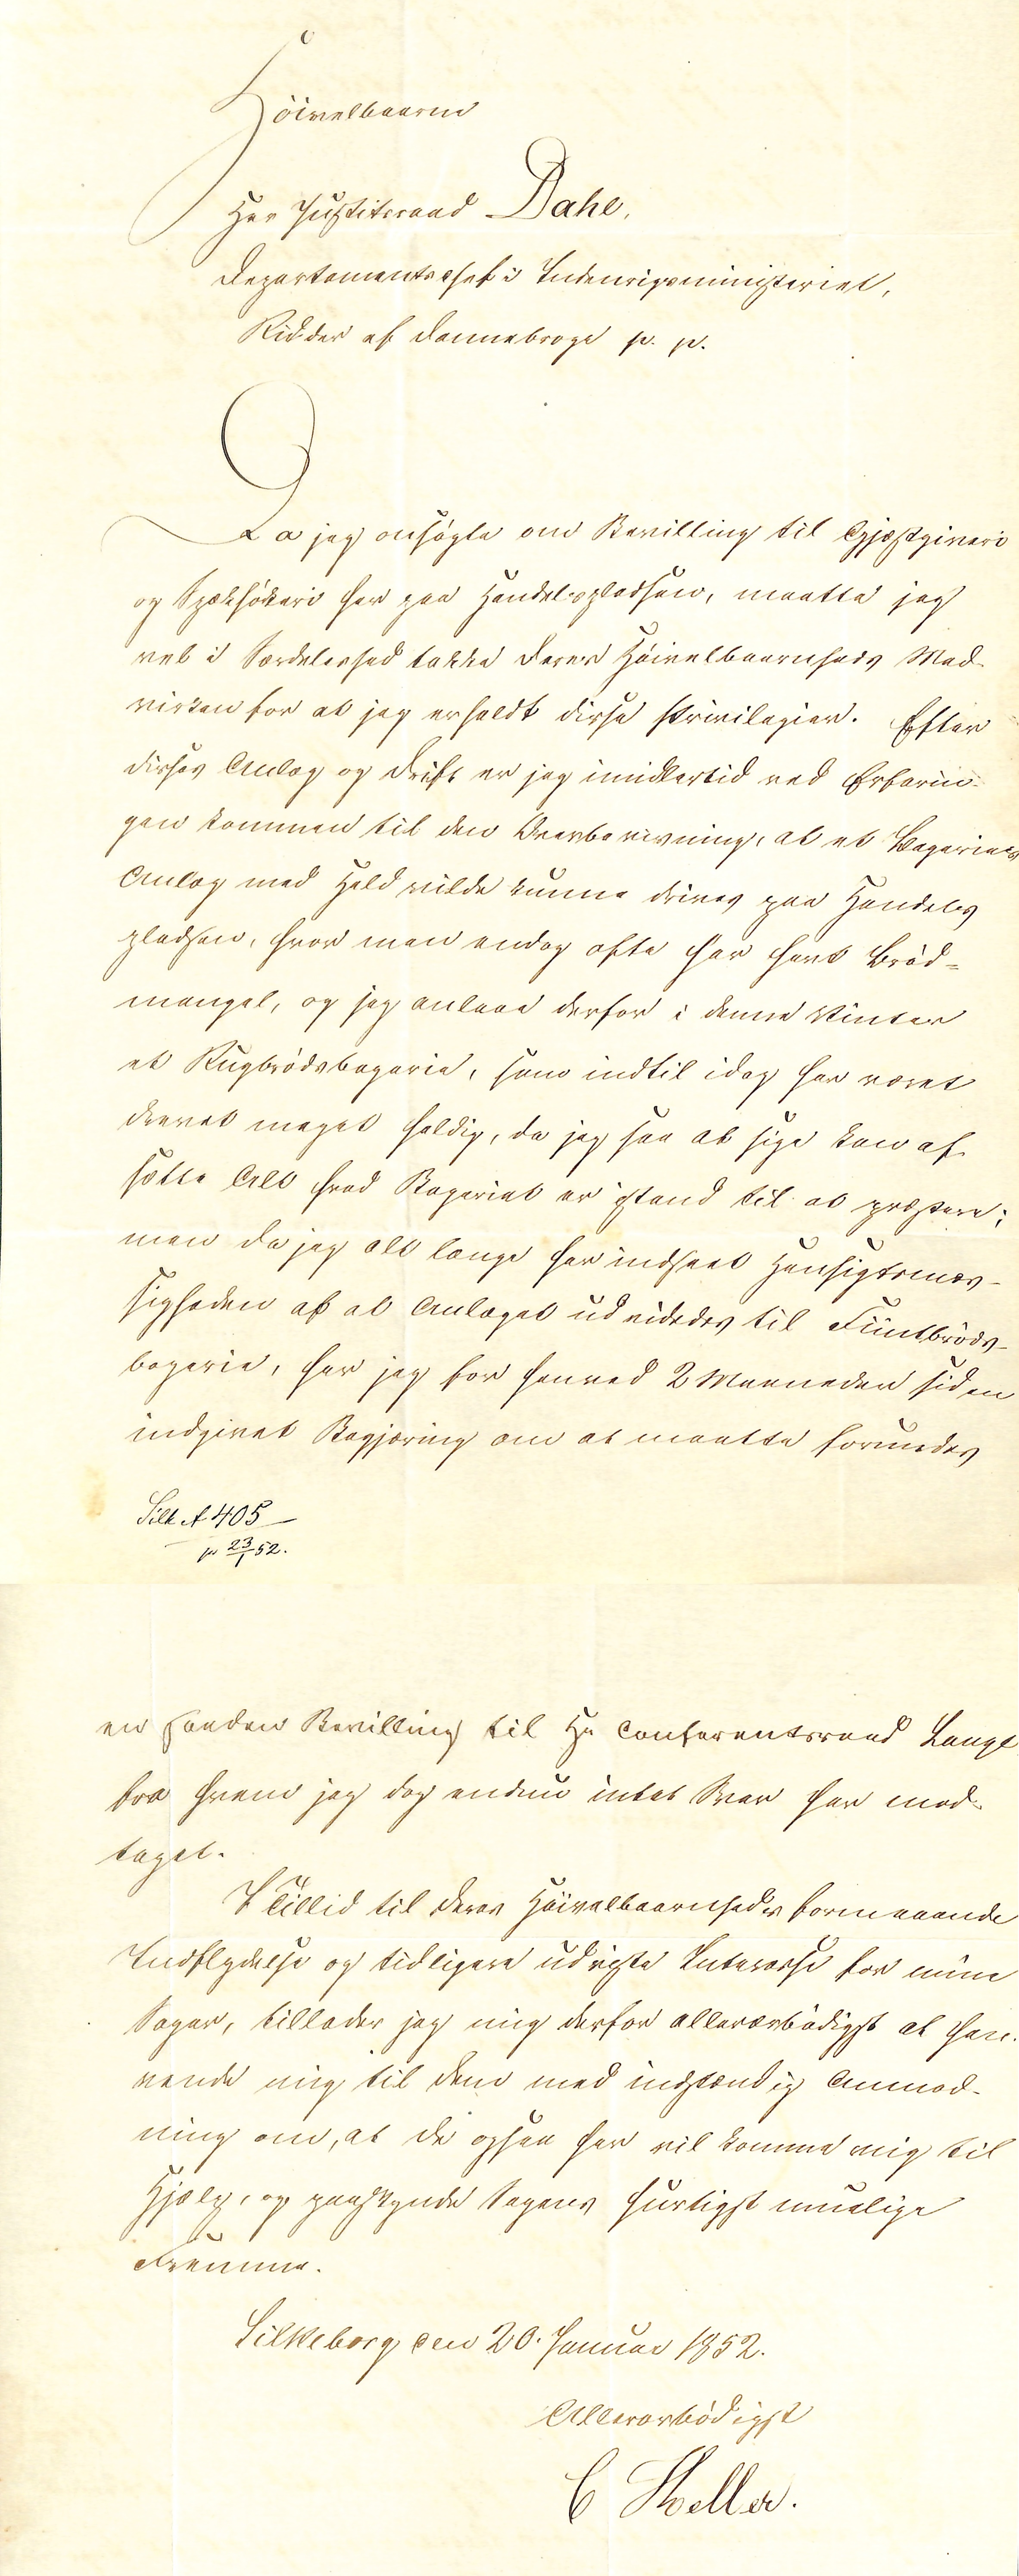 Høivelbaarne
Herr Justitsraad Dahl,
Departementschef i Indenrigsministeriet,
Ridder af Dannebroge p. p.
Da jeg ansøgte om Bevilling til Gjæstgiveri
og Spækhøkeri her paa Handelspladsen, maatte jeg
vel i Særdeleshed takke Deres Høivelbaarnheds Med-
virken for at jeg erholdt disse Privilegier. Efter
disses Anlæg og Drift er jeg imidlertid ved Erfarin-
gen kommen til den Overbeviisning, at et Bageries
Anlæg med Held vilde kunne drives paa Handels
pladsen, hvor man endog ofte har havt Brød-
mangel, og jeg anlagde derfor i denne Vinter
et Rugbrødsbagerie, som indtil idag har været
drevet meget heldig, da jeg saa at sige kan af-
sætte Alt hvad Bageriet er istand til at præstere;
men da jeg alt længe har indseet Hensigtsmæs-
sigheden af at Anlæget udvidedes til Fiintbrøds-
bagerie, har jeg for henved 2 Maaneder siden
indgivet Begjæring om at maatte forundes
Silk A 405
pr 23/1 52.
en saadan Bevilling til Hr Conferentsraad Lange
fra hvem jeg dog endnu intet Svar har mod-
taget.
I Tillid til Deres Høivelbaarnheds formaaende
Indflydelse og tidligere udviste Interesse for mine
Sager, tillader jeg mig derfor allerærbødigst at hen-
vende mig til Dem med indstændig Anmod-
ning om, at De ogsaa her vil komme mig til
Hjælp, og paaskynde Sagens hurtigst muelige
Fremme.
Silkeborg den 20. Januar 1852.
Allerærbødigst
C Møller.